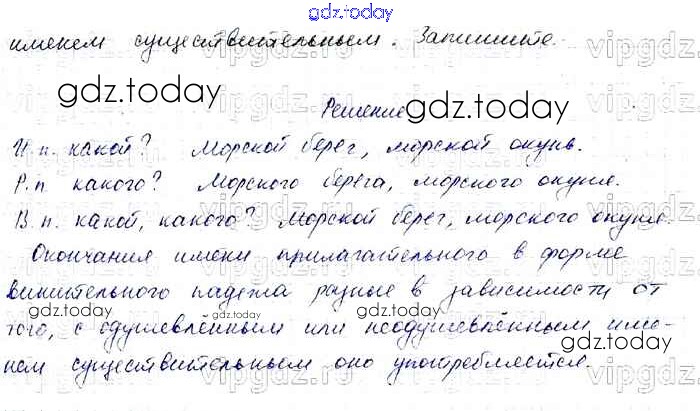 gdz.today
именем существительным. Запишите.
gdz.today
gdz.today
Решение
И.п. какой? Морской берег, морской окунь.
Р.п какого? Морского берега, морского окуня.
В.п. какой, какого? Морской берег, морского окуня.
Окончания имени прилагательного в форме
винительного падежа разные в зависимости от
того, с одушевлённым или неодушевлённым име-
нем существительным оно употребляется.
gdz.today
gdz.today